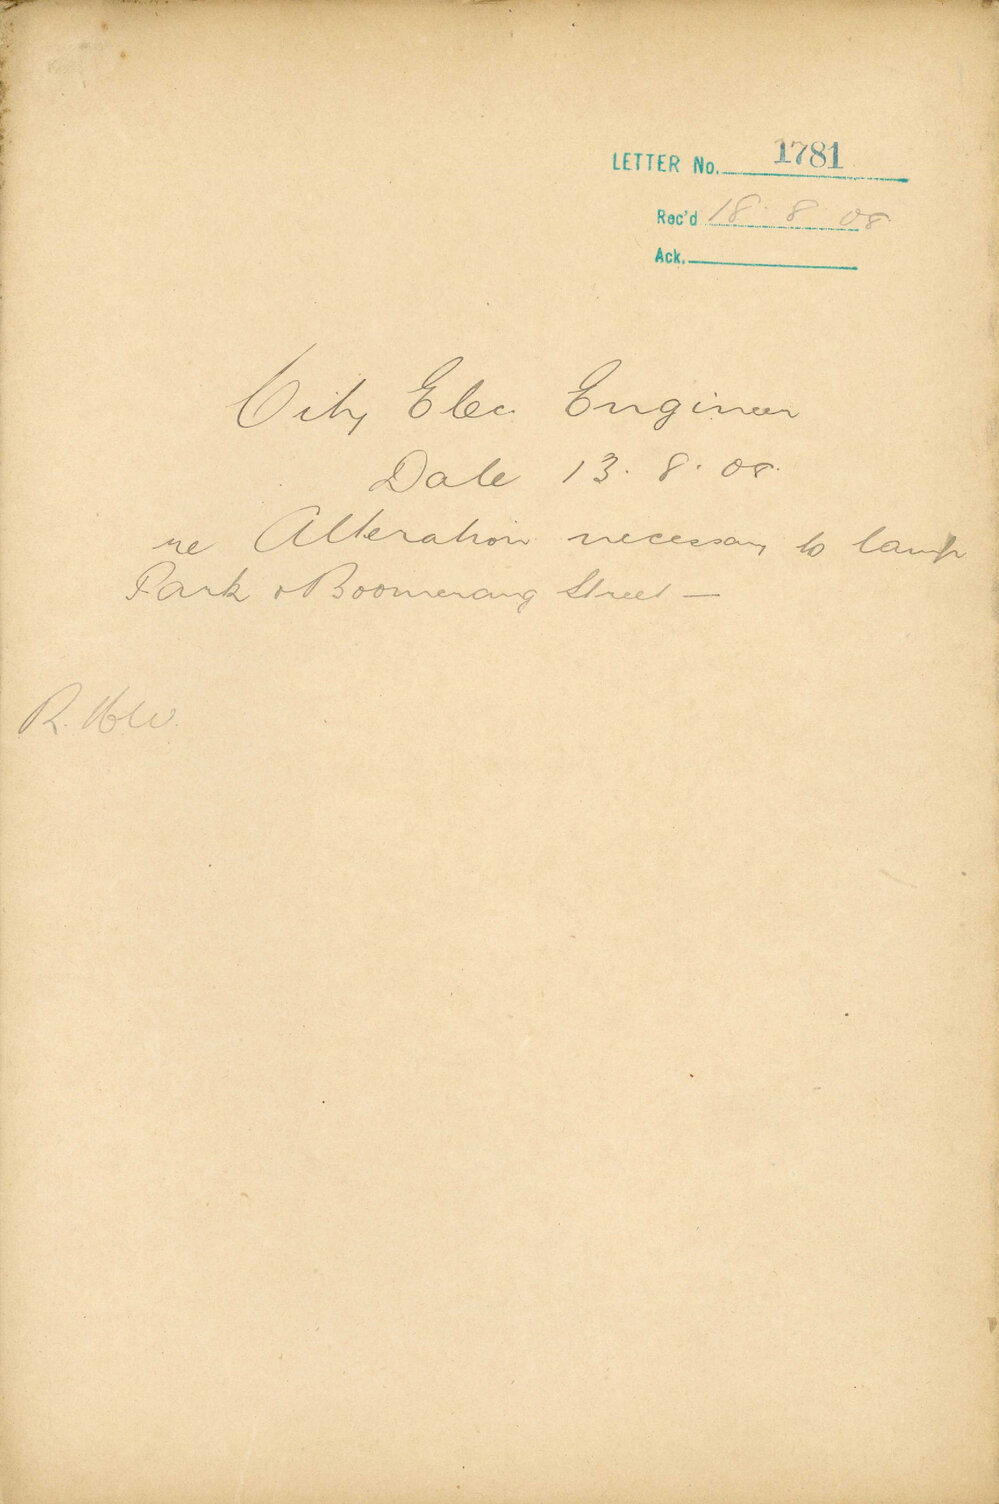 LETTER No. 1781
Rec'd 18. 8. 08
Ack.
City Elec. Engineer
Date 13. 8. 08.
re Alteration necessary to lamp
Park & Boomerang Street —
R.